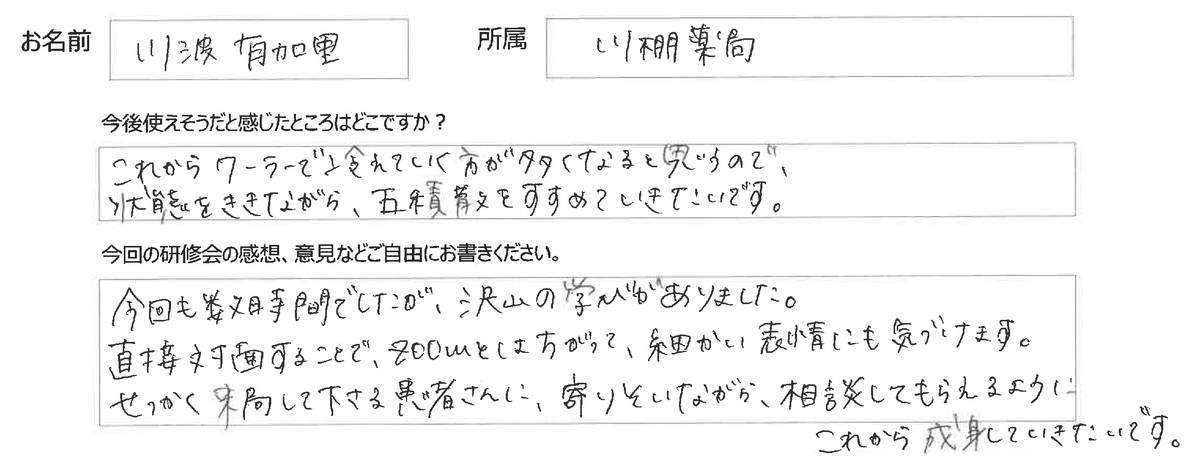 お名前 川波 有加里 所属 川棚薬局
今後使えそうだと感じたところはどこですか?
これからクーラーで冷えていく方が多くなると思うので、
状態をききながら、五積散をすすめていきたいです。
今回の研修会の感想、意見などご自由にお書きください。
今回も数時間でしたが、沢山の学びがありました。
直接対面することで、ZOOMとはちがって、細かい表情にも気づけます。
せっかく来局して下さる患者さんに、寄りそいながら、相談してもらえるように
これから成長していきたいです。